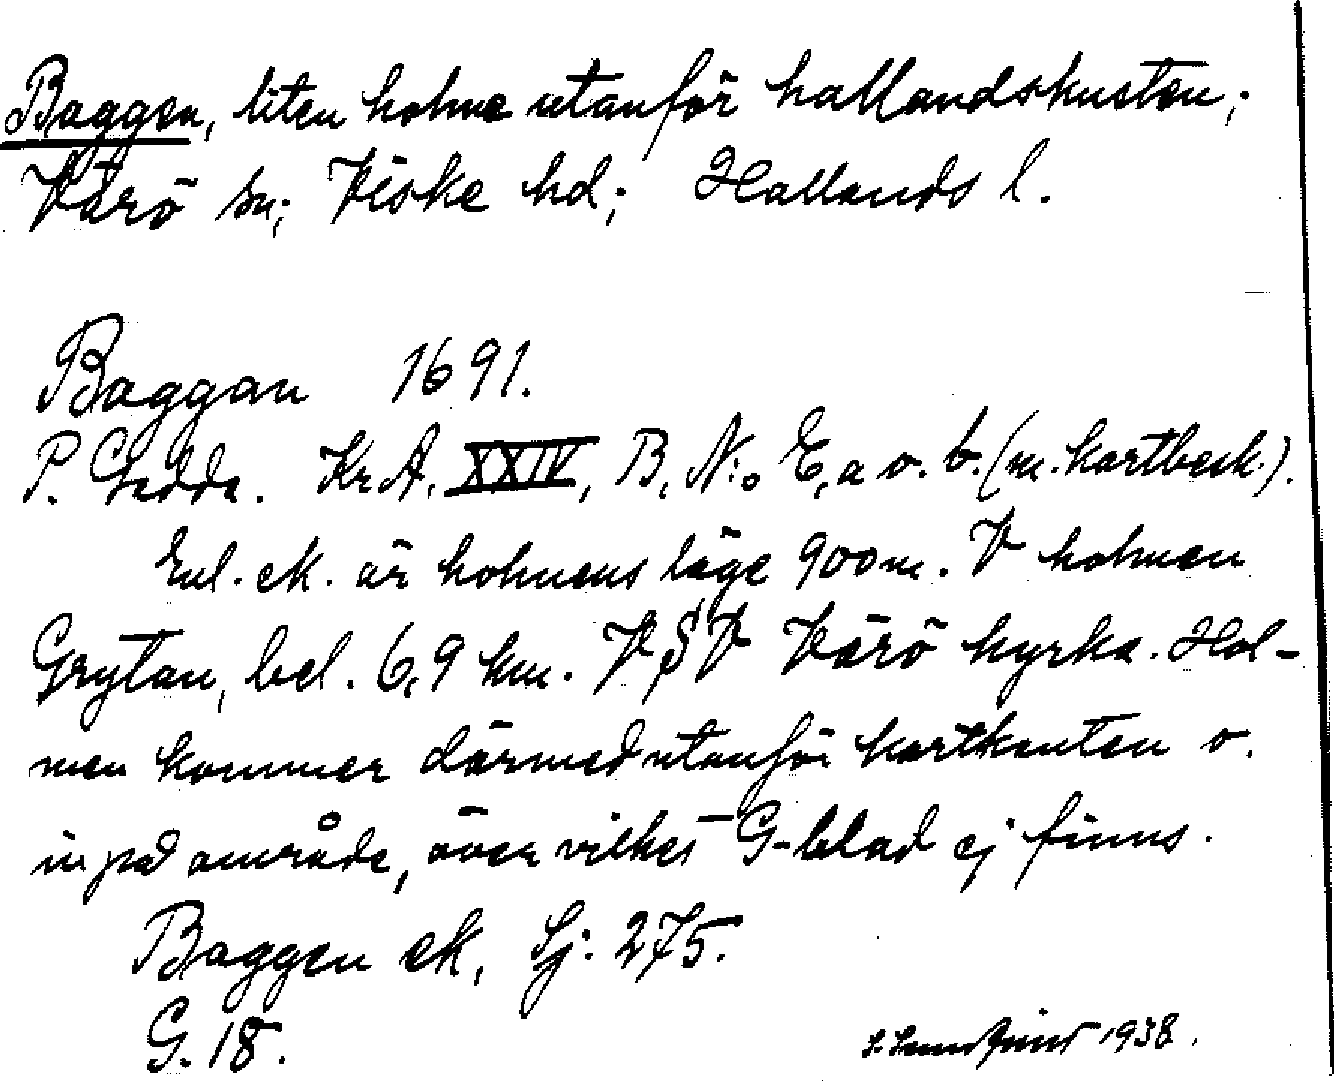 Baggen, liten holme utanför hallandskusten;
Värö sn; Viske hd; Hallands l.
Baggan 1691.
P. Gedda. Kr.A. XXIV, B, N:o E, a o. b. (m. kartbesk.).
Enl. ek. är holmens läge 900 m. V holmen
Grytan, bel. 6,9 km. VSV Värö kyrka. Hol-
men kommer därmed utanför kartkanten o.
in på område, över vilket G-blad ej finns.
Baggen ek, Sj: 275.
G. 18.
1938.